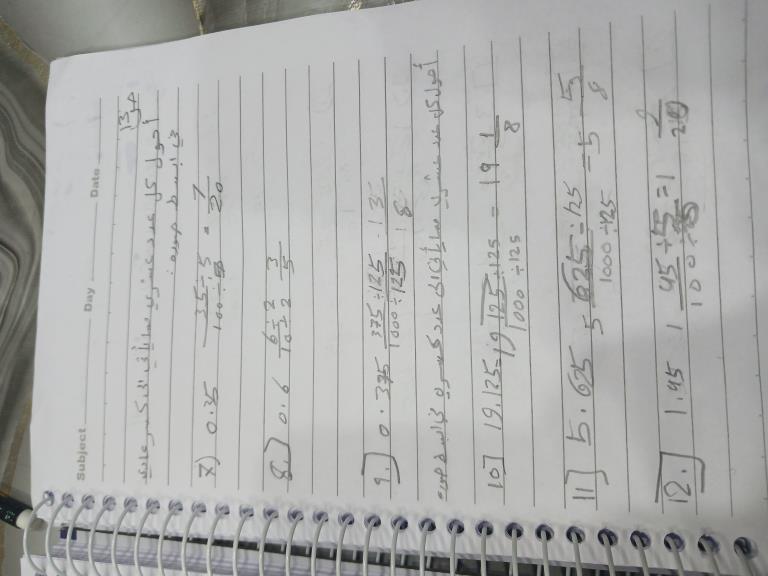 Subject Day Date
أحول كل عدد عشري مما يأتي إلى كسر عادي
في أبسط صورة:
7) 0.35 35÷5/100÷5 = 7/20
8.] 0.6 6÷2/10÷2 3/5
9.] 0.375 375÷125/1000÷125 3/8
أحول كل عدد عشري مما يأتي إلى عدد كسري في أبسط صورة
10] 19.125=19 125÷125/1000÷125 = 19 1/8
11] 5.625 5 625÷125/1000÷125 =5 5/8
12.] 1.45 1 45÷5/100÷5 =1 /20